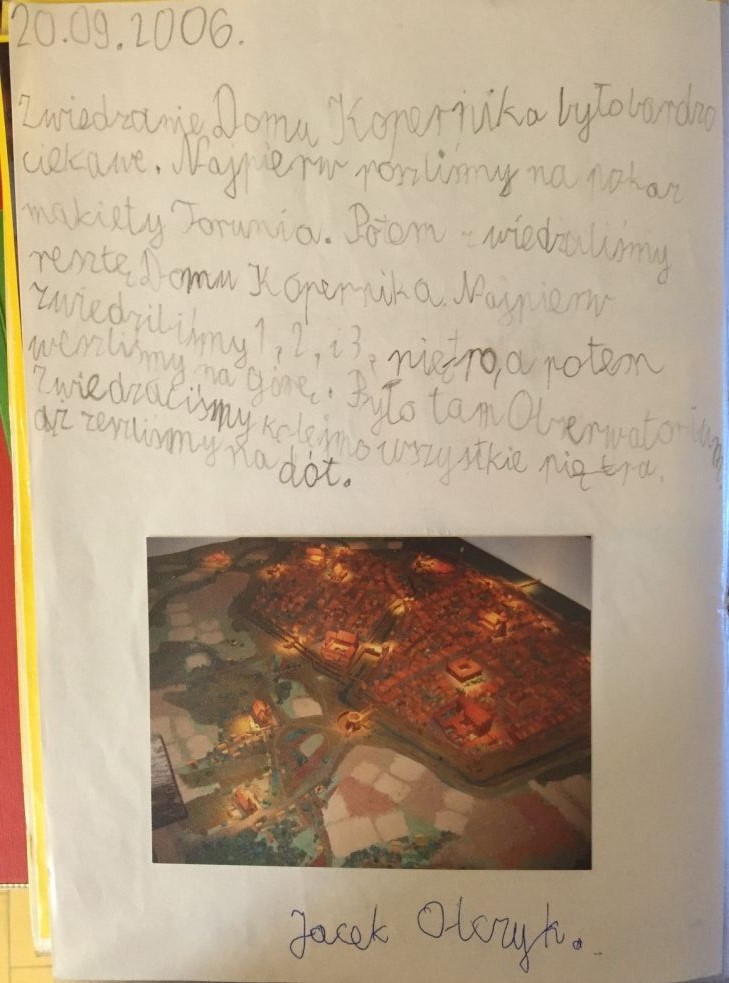 20.09.2006.
Zwiedzanie Domu Kopernika było bardzo
ciekawe. Najpierw poszliśmy na pokaz
makiety Torunia. Potem zwiedzaliśmy
resztę Domu Kopernika. Najpierw
zwiedziliśmy 1, 2, i 3, piętro, a potem
weszliśmy na górę. Było tam Obserwatorium
Zwiedzaliśmy kolejno wszystkie piętra,
aż zeszliśmy na dół.
Jacek Olczyk.